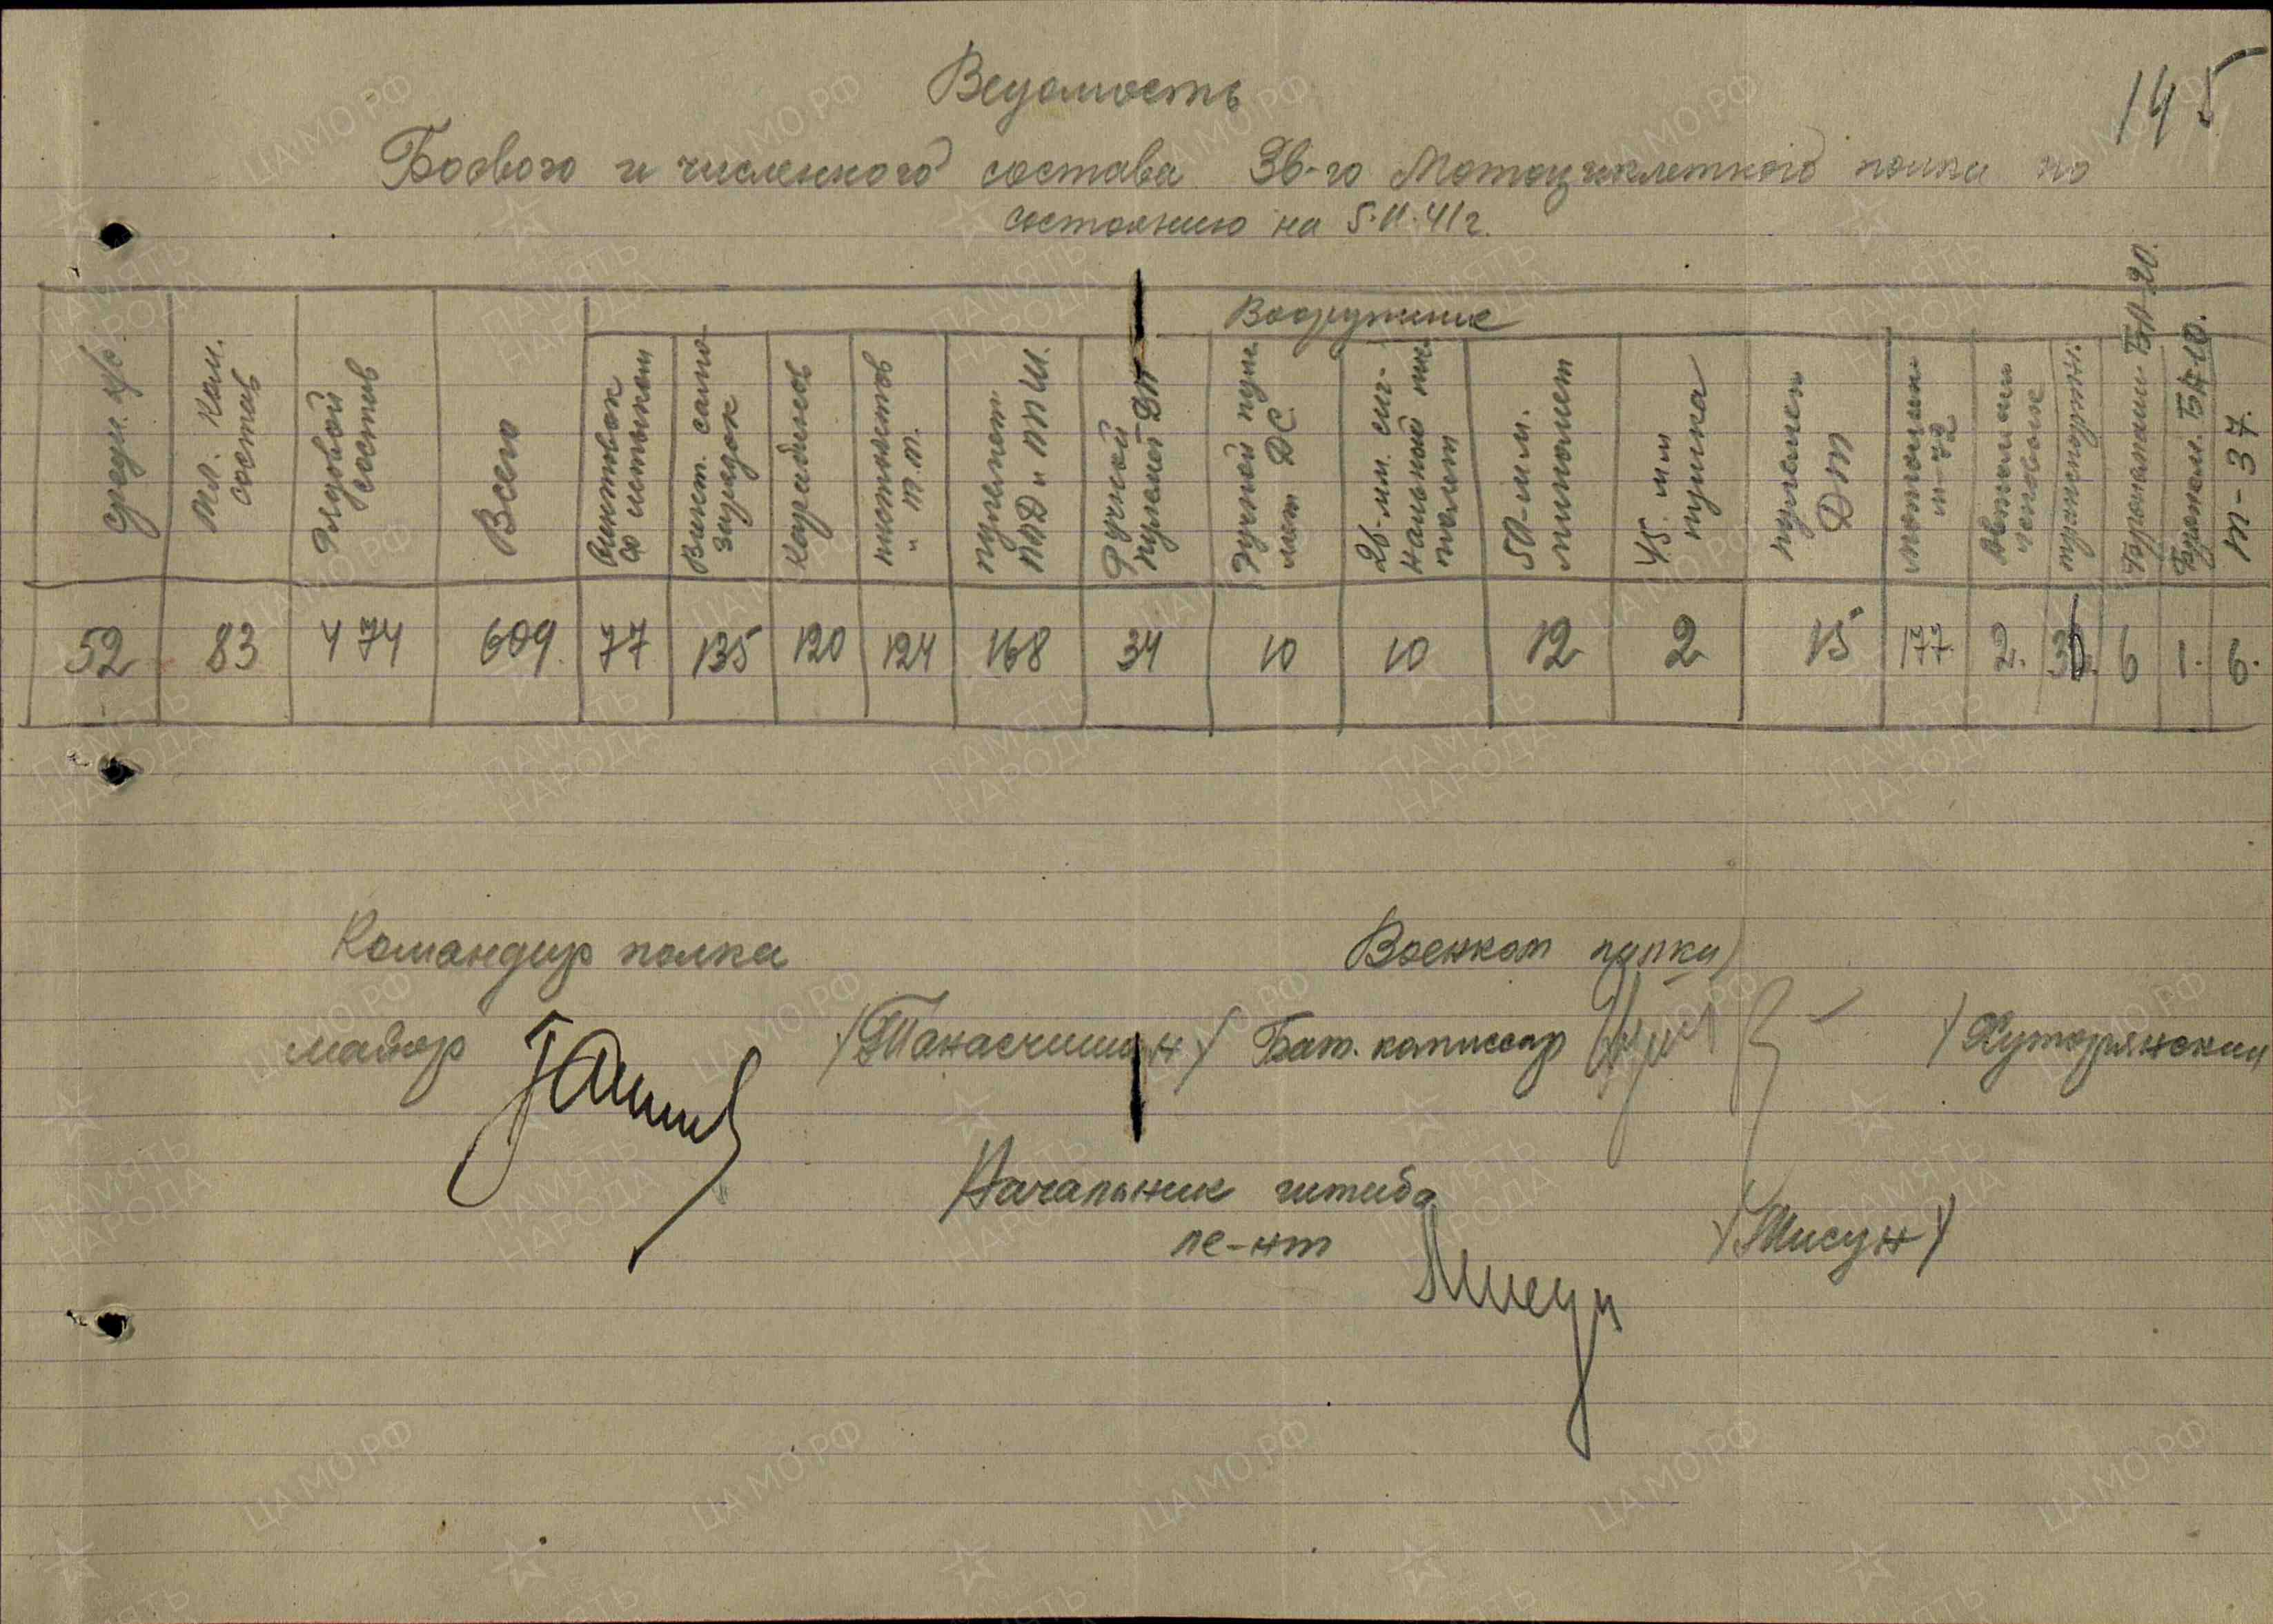 145
Ведомость
Боевого и численного состава 36-го Мотоциклетного полка по
состоянию на 5.11.41г.
Вооружение
средн. к/с.
мл. ком. состав
Рядовой состав
Всего
Винтовок со штыком
Винт. само зарядок
Карабинов
пистолетов " т.т.
пулемет ППД и ППШ.
Ручной пулемет ДП
Ручной пуле мет ДС
26-мм. сиг- нальной пис толет
50-мм. миномет
45. мм пушка
пулемет ДТ
мотоцикл м-72
Автомаш легковые
транспортн.
Бронемаш. БА 20.
Бронем. БА-10.
Т-37.
52 83 474 609. 77 135 120 124 168 34 10 10 12 2 15 177. 2. 6 1. 6.
Командир полка
Военком полка
майор /Танасчишин/ Бат. комиссар /Хуторянский
Начальник штаба
ле-нт /Мисун/
ЦА МО РФ
ПАМЯТЬ НАРОДА